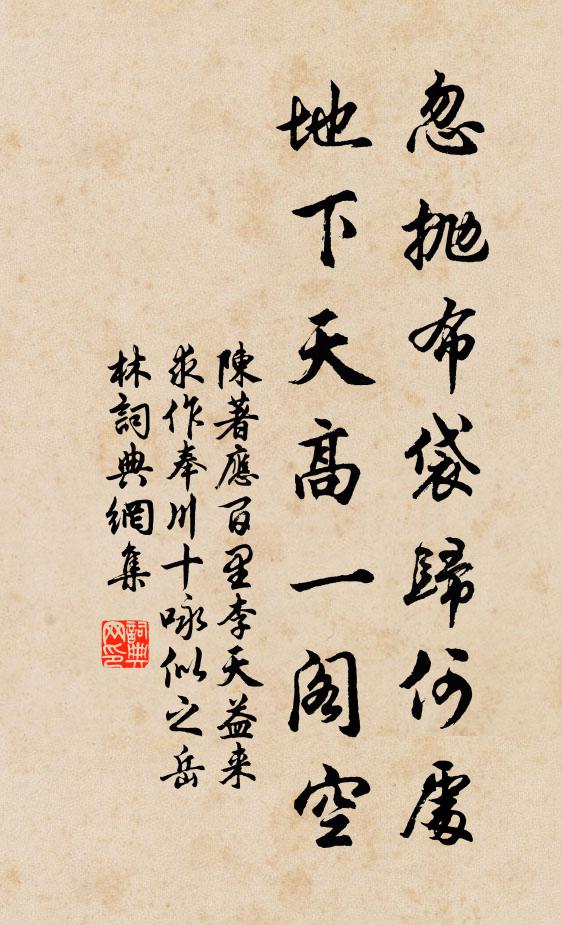 忽抛布袋歸何處
地下天高一阁空
陳著應百里李天益来
求作奉川十咏似之岳
林詞典網集
詞典
网印